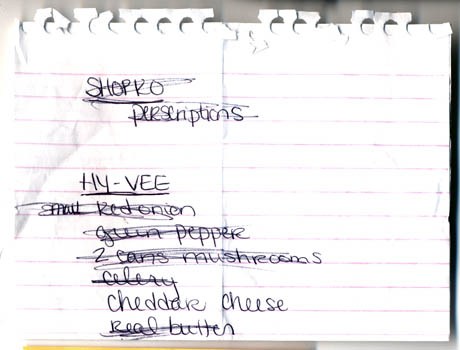 SHOPKO
perscriptions
HY-VEE
small Red onion
green pepper
2 cans mushrooms
celery
cheddar cheese
Real butter